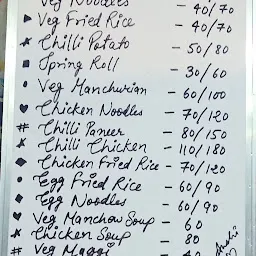 Veg Noodles - 40/70
▶ Veg Fried Rice - 40/70
★ Chilli Potato - 50/80
■ Spring Roll - 30/60
• Veg Manchurian - 60/100
♥ Chicken Noodles - 70/120
# Chilli Paneer - 80/150
★ Chilli Chicken - 110/180
◆ Chicken Fried Rice - 70/120
• Egg Fried Rice - 60/90
◆ Egg Noodles - 60/90
♥ Veg Manchow Soup - 60
★ Chicken Soup - 80
# Veg Maggi - 40